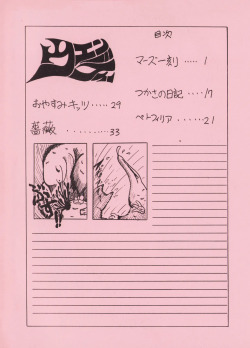 目次
マーズ一刻 ..... 1
つかさの日記 .... 17
ペドフィリア ...... 21
おやすみキッツ ..... 29
薔薇 ......... 33